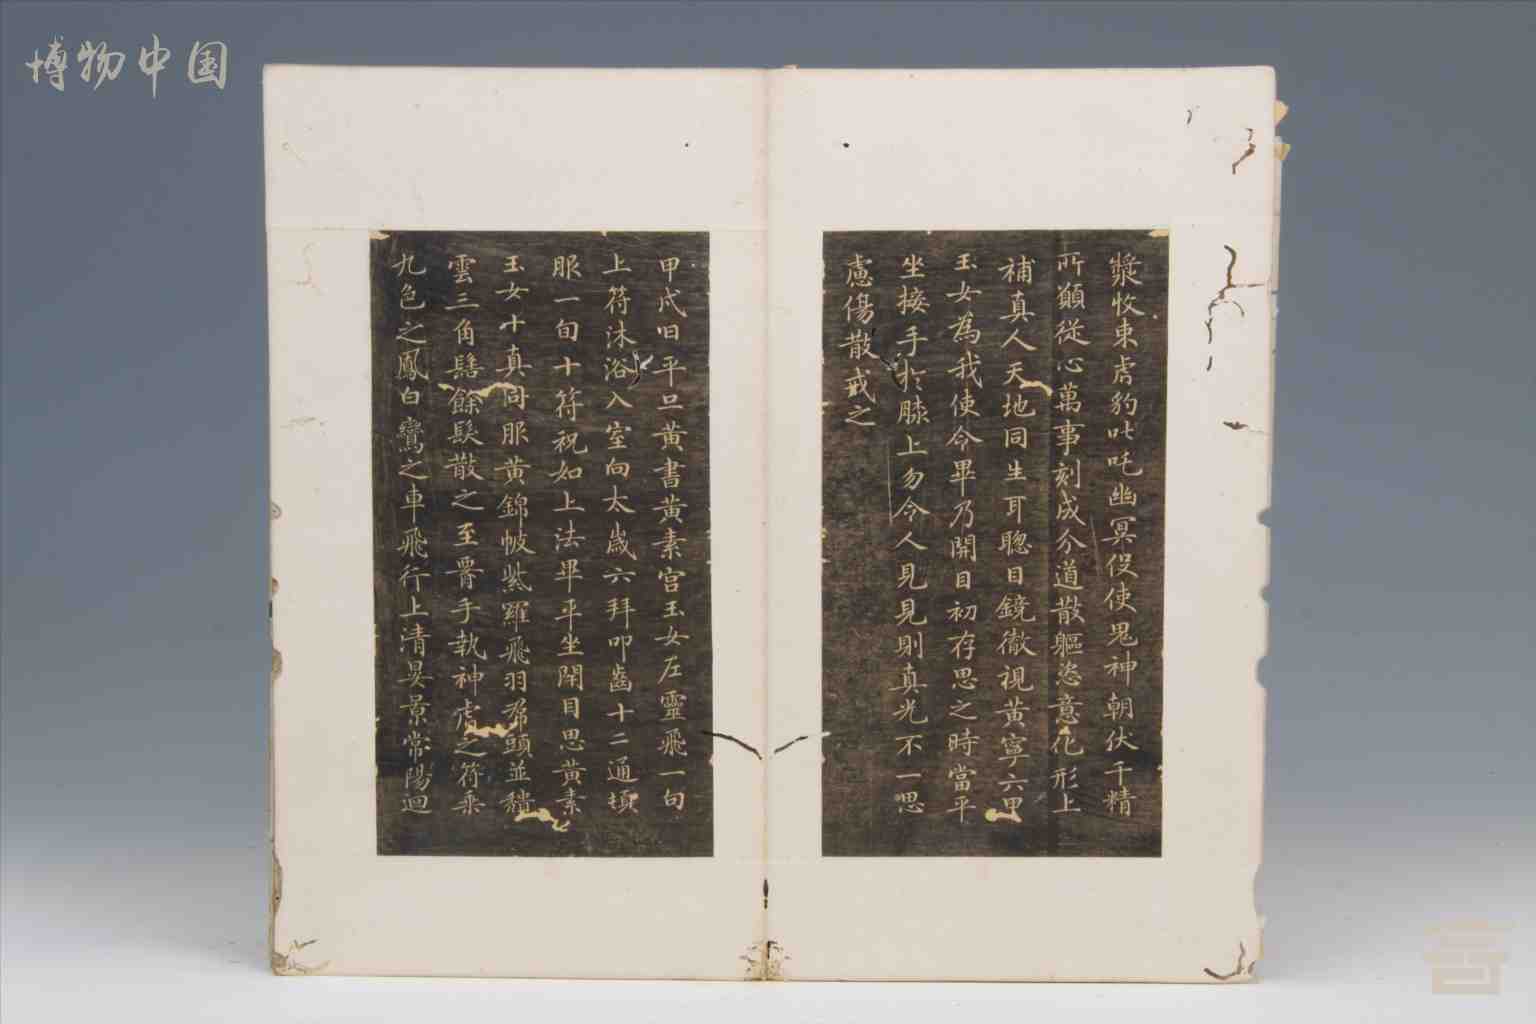 博物中国
漿牧束虎豹叱吒幽冥役使鬼神朝伏千精
所願從心萬事剋成分道散軀恣意化形上
補真人天地同生耳聰目鏡徹視黃寧六甲
玉女為我使令畢乃開目初存思之時當平
坐接手於膝上勿令人見見則真光不一思
慮傷散戒之
甲戌旧平旦黃書黃素宮玉女左靈飛一旬
上符沐浴入室向太歲六拜叩齒十二通頓
服一旬十符祝如上法畢平坐閉目思黃素
玉女十真同服黃錦帔紫羅飛羽帬頭並穨
雲三角髻餘髮散之至要手執神虎之符乘
九色之鳳白鸞之車飛行上清晏景常陽迴